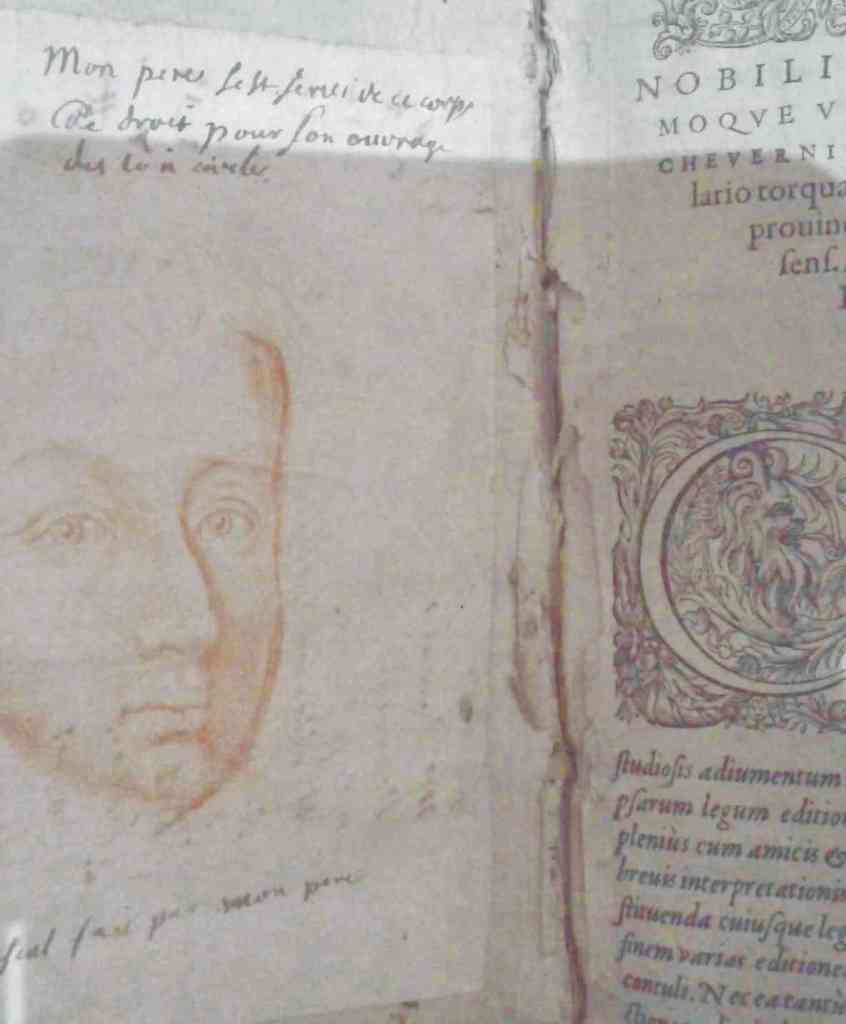 Mon pere s'est servi de ce corps
De droit pour son ouvrage
des loix civiles
scal fait par mon pere
NOBILI
MOQVE V
CHEVERNI
lario torqua
prouin
ſenſ.
ſtudioſis adiumentum
pſarum legum editio
pleniùs cum amicis &
breuis interpretationi
ſtituenda cuiuſque leg
finem varias editione
contuli. Nec ea tantù